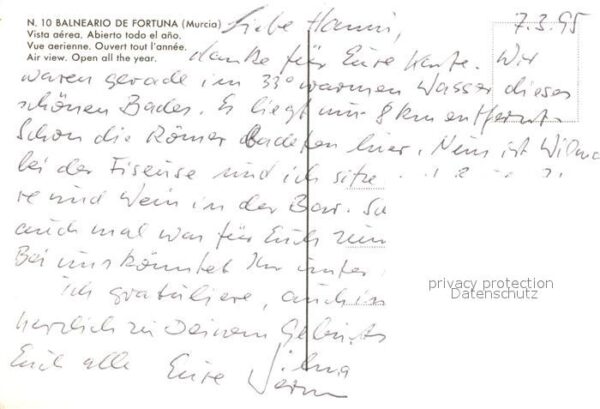 N. 10 BALNEARIO DE FORTUNA (Murcia)
Vista aérea. Abierto todo el año.
Vue aerienne. Ouvert tout l'année.
Air view. Open all the year.
Liebe Hanni, 7.3.95
danke für Eure Karte. Wir
waren gerade im 33° warmen Wasser dieses
schönen Bades. Es liegt nur 8 km entfernt.
Schon die Römer badeten hier. Nun ist Wilma
bei der Friseuse und ich sitze
und Wein in der Bar. So
auch mal was für Euch zum
Bei uns könntet Ihr unter
ich gratuliere, auch in
herzlich zu Deinem Geburts
Euch alle Eure Wilma
privacy protection
Datenschutz